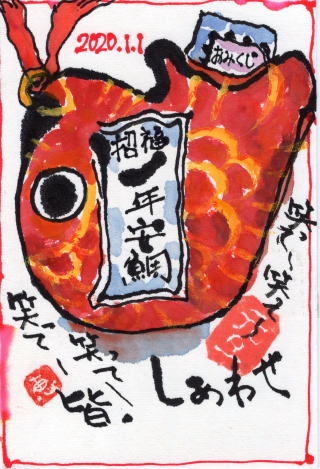 2020.1.1
おみくじ
招福
一年安鯛
笑って笑って
しあわせ
笑って
笑って皆
恵